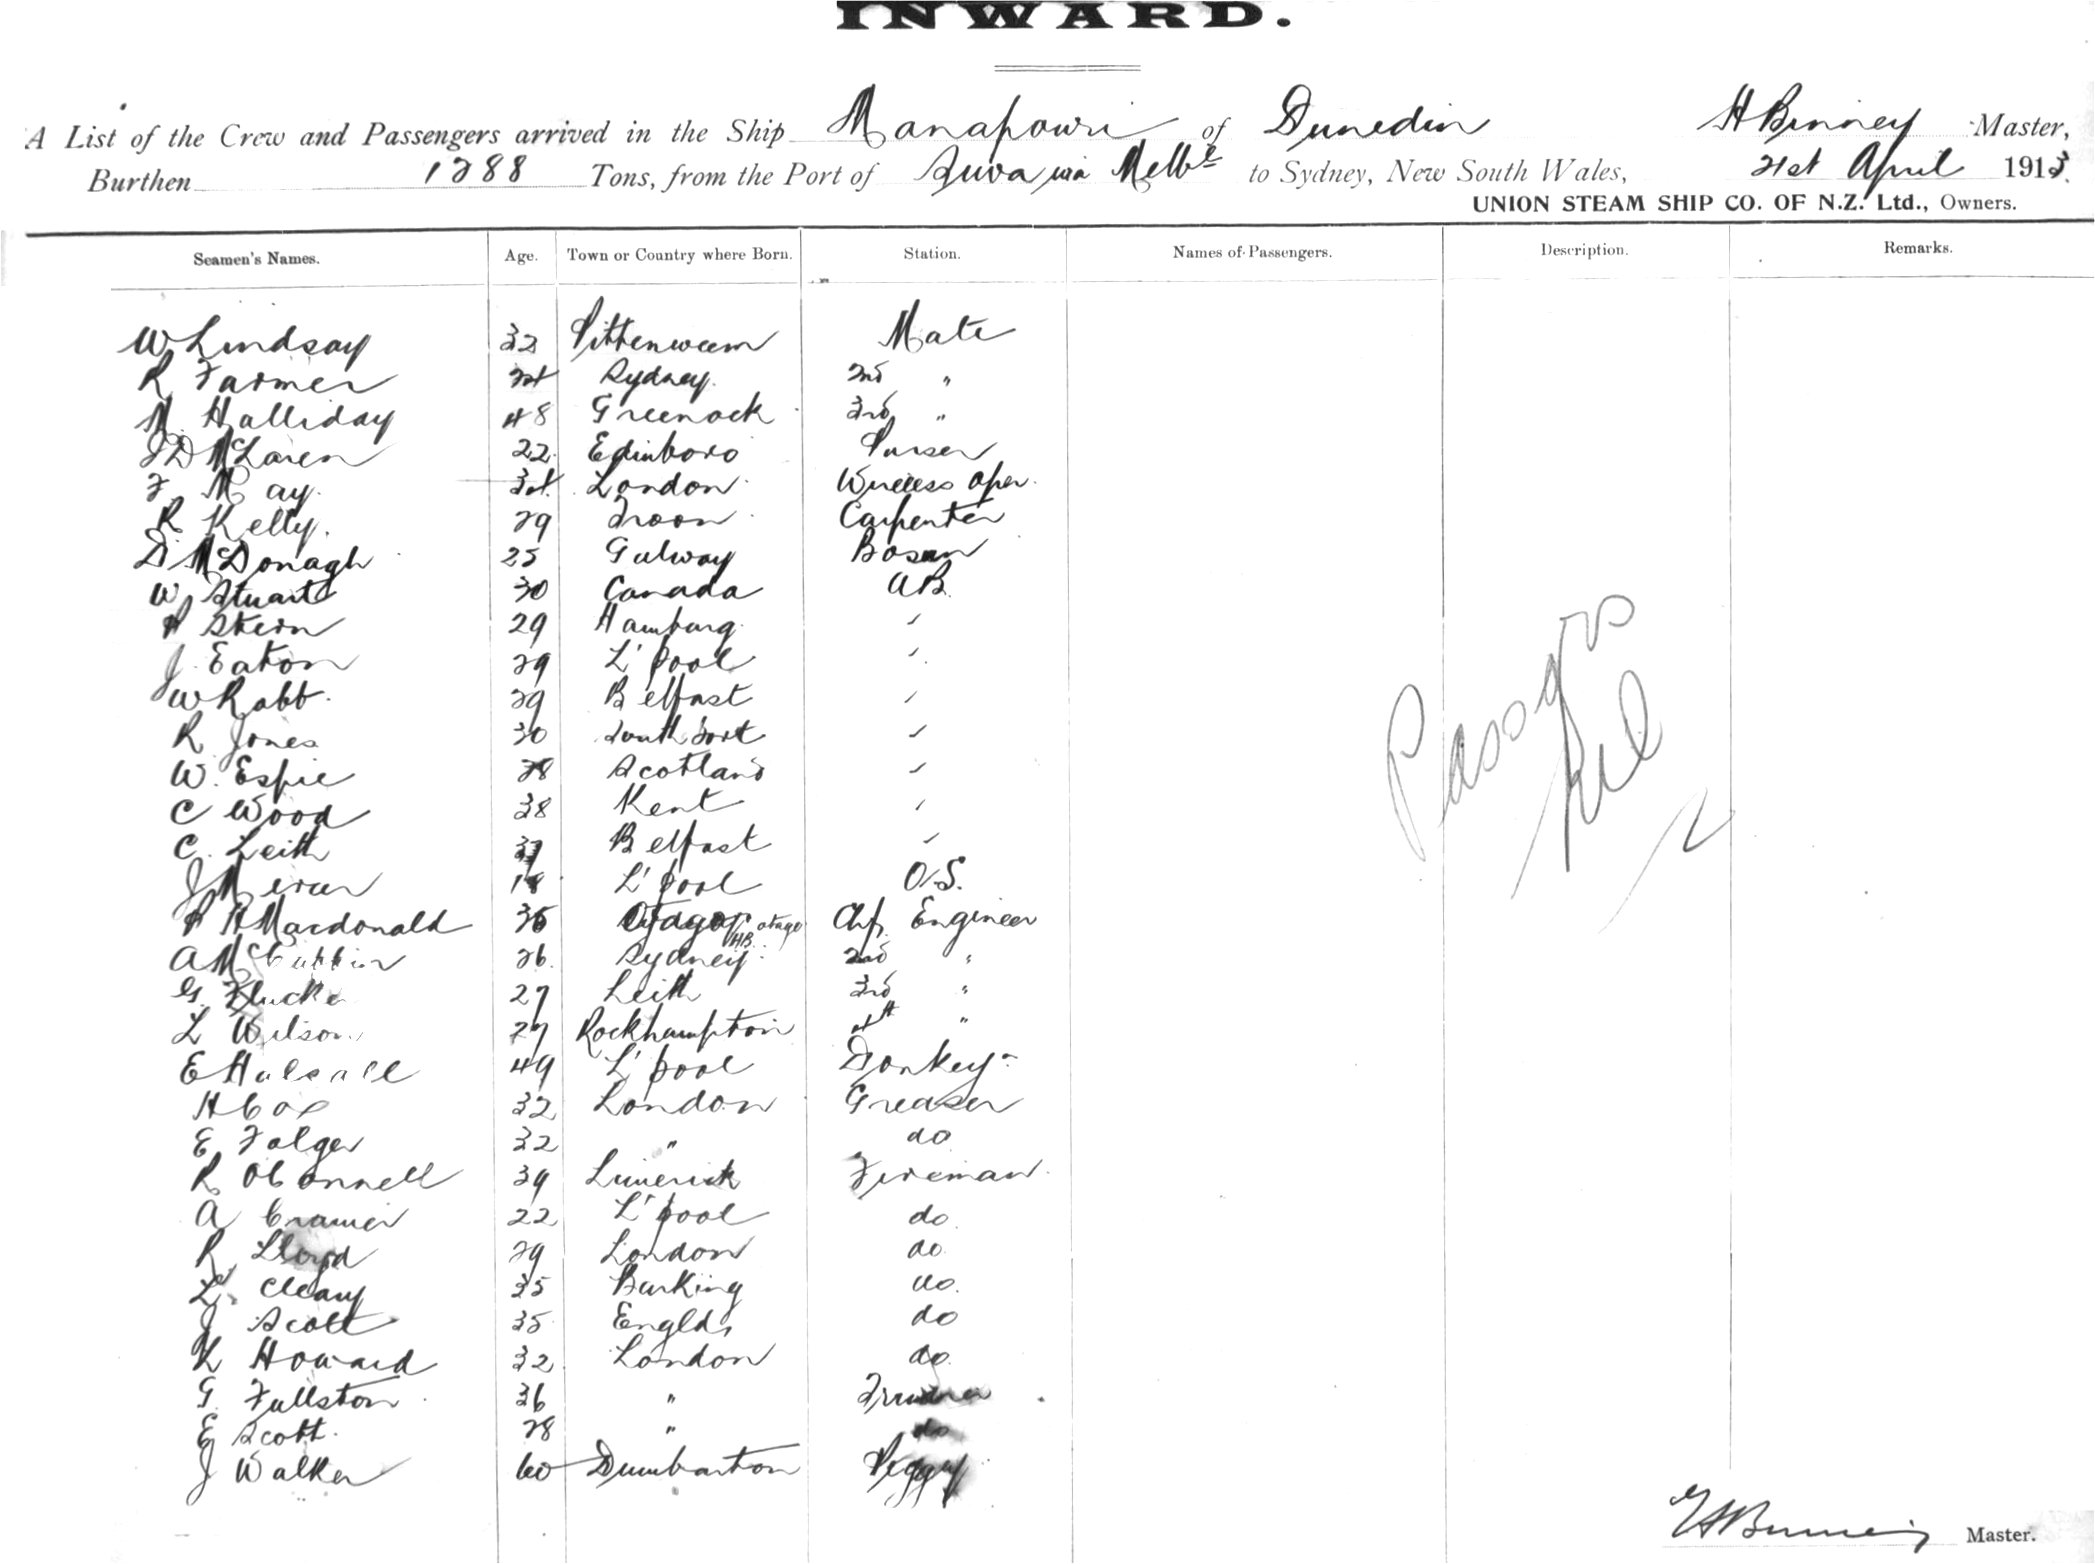 INWARD.
A List of the Crew and Passengers arrived in the Ship Manapouri of Dunedin H Binney Master,
Burthen 1288 Tons, from the Port of Suva via Melbe to Sydney, New South Wales, 21st April 1913.
UNION STEAM SHIP CO. OF N.Z. Ltd., Owners.
Seamen's Names. Age. Town or Country where Born. Station. Names of Passengers. Description. Remarks.
W Lindsay 32 Pittenweem Mate
R Farmer Sydney. 2nd "
M. Halliday 48 Greenock 3rd "
J D McLaren 22 Edinboro Purser
F. May. 34 London Wireless Oper.
R Kelly. 29 Troon Carpenter
D McDonagh 25 Galway Bosun
W Stuart 30 Canada AB.
Stern 29 Hamburg "
J. Eaton 29 L'pool "
W Rabb. 29 Belfast "
R Jones 30 South Port "
W. Espie 28 Scotland "
C Wood 38 Kent "
C. Leith Belfast "
J 18 L'pool O.S.
H Macdonald 36 Otago Otago HB. Chf. Engineer
A McCubbin 26 Sydney. 2nd "
G. Flucke 27 Leith 3rd "
L Wilson 27 Rockhampton 4th "
E Halsall 49 L'pool Donkey
H Cox 32 London Greaser
E Folger 32 " do
R OConnell 39 Limerick Fireman
A Cramer 22 L'pool do
R Lloyd 29 London do
L. Cleary 35 Barking do.
J Scott 35 Englds do
H Howard 32 London do.
G. Fullston 36 " Trimmer
E Scott. 28 " do
J Walker 60 Dumbarton Peggy
Passgrs
Nil
H Binney Master.